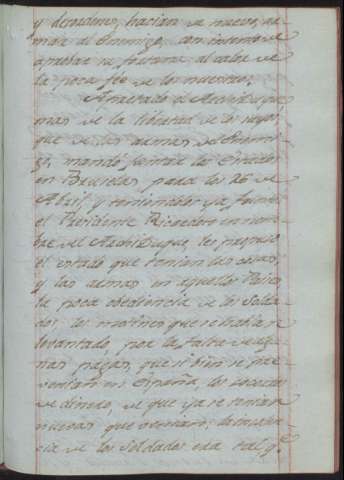 y derrotados, hacian de nuevo, ar-
mar al Enemigo, con intento de
aprobar su fortuna al calor de
la poca fee de los nuestros.
Apretado el Archiduque
mas de la libertad de los suyos,
que de las armas del Enemi-
go, mandó juntar los Estados
en Bruselas para los 26 de
Abril, y teniendolos ya juntos
el Presidente Ricardoto en nom-
bre del Archiduque, les propuso
el estado que tenian las cosas,
y las armas en aquellos Paises
la poca obediencia de los Solda-
dos, los motines que se habian
levantado, por la falta de algu-
nas pagas, que si bien se pre-
sentaron en España, los socorros
de dinero, de que ya se tenian
nuevas que
cia de los Soldados era tal q.e